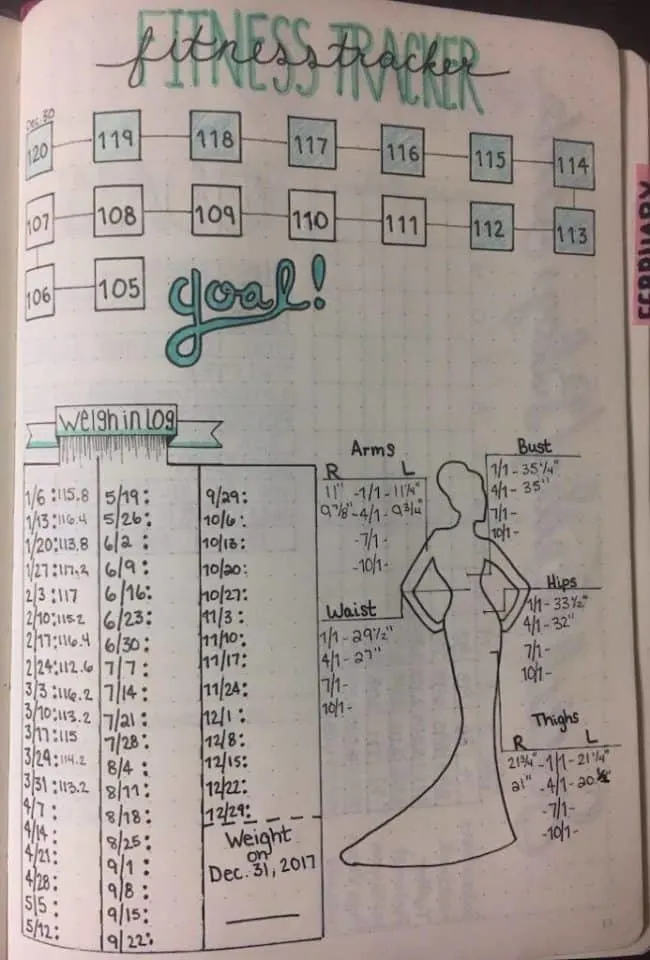 FITNESS TRACKER
fitness tracker
Dec. 30
120 119 118 117 116 115 114
107 108 109 110 111 112 113
106 105 goal!
FEBRUARY
Weigh in Log
1/6 : 115.8
1/13 : 116.4
1/20 : 113.8
1/27 : 117.2
2/3 : 117
2/10 : 115.2
2/17 : 116.4
2/24 : 112.6
3/3 : 116.2
3/10 : 113.2
3/17 : 115
3/24 : 114.2
3/31 : 113.2
4/7 :
4/14 :
4/21 :
4/28 :
5/5 :
5/12 :
5/19 :
5/26 :
6/2 :
6/9 :
6/16 :
6/23 :
6/30 :
7/7 :
7/14 :
7/21 :
7/28 :
8/4 :
8/11 :
8/18 :
8/25 :
9/1 :
9/8 :
9/15 :
9/22 :
9/29 :
10/6 :
10/13 :
10/20 :
10/27 :
11/3 :
11/10 :
11/17 :
11/24 :
12/1 :
12/8 :
12/15 :
12/22 :
12/29 :
Weight
on
Dec. 31, 2017
Arms
R L
11" - 1/1 - 11 1/4"
9 7/8" - 4/1 - 9 3/4"
- 7/1 -
- 10/1 -
Bust
1/1 - 35 1/4"
4/1 - 35"
7/1 -
10/1 -
Waist
1/1 - 29 1/2"
4/1 - 27"
7/1 -
10/1 -
Hips
1/1 - 33 1/2"
4/1 - 32"
7/1 -
10/1 -
Thighs
R L
21 3/4" - 1/1 - 21 1/4"
21" - 4/1 - 20
- 7/1 -
- 10/1 -